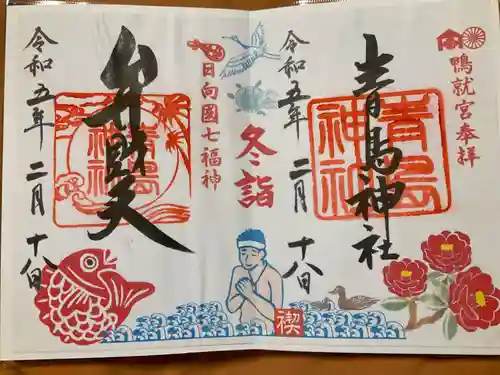 鴨就宮奉拝
青島神社
青島神社
令和五年 二月 十八日
冬詣
禊
日向國七福神
弁財天
青島神社
令和五年 二月 十八日